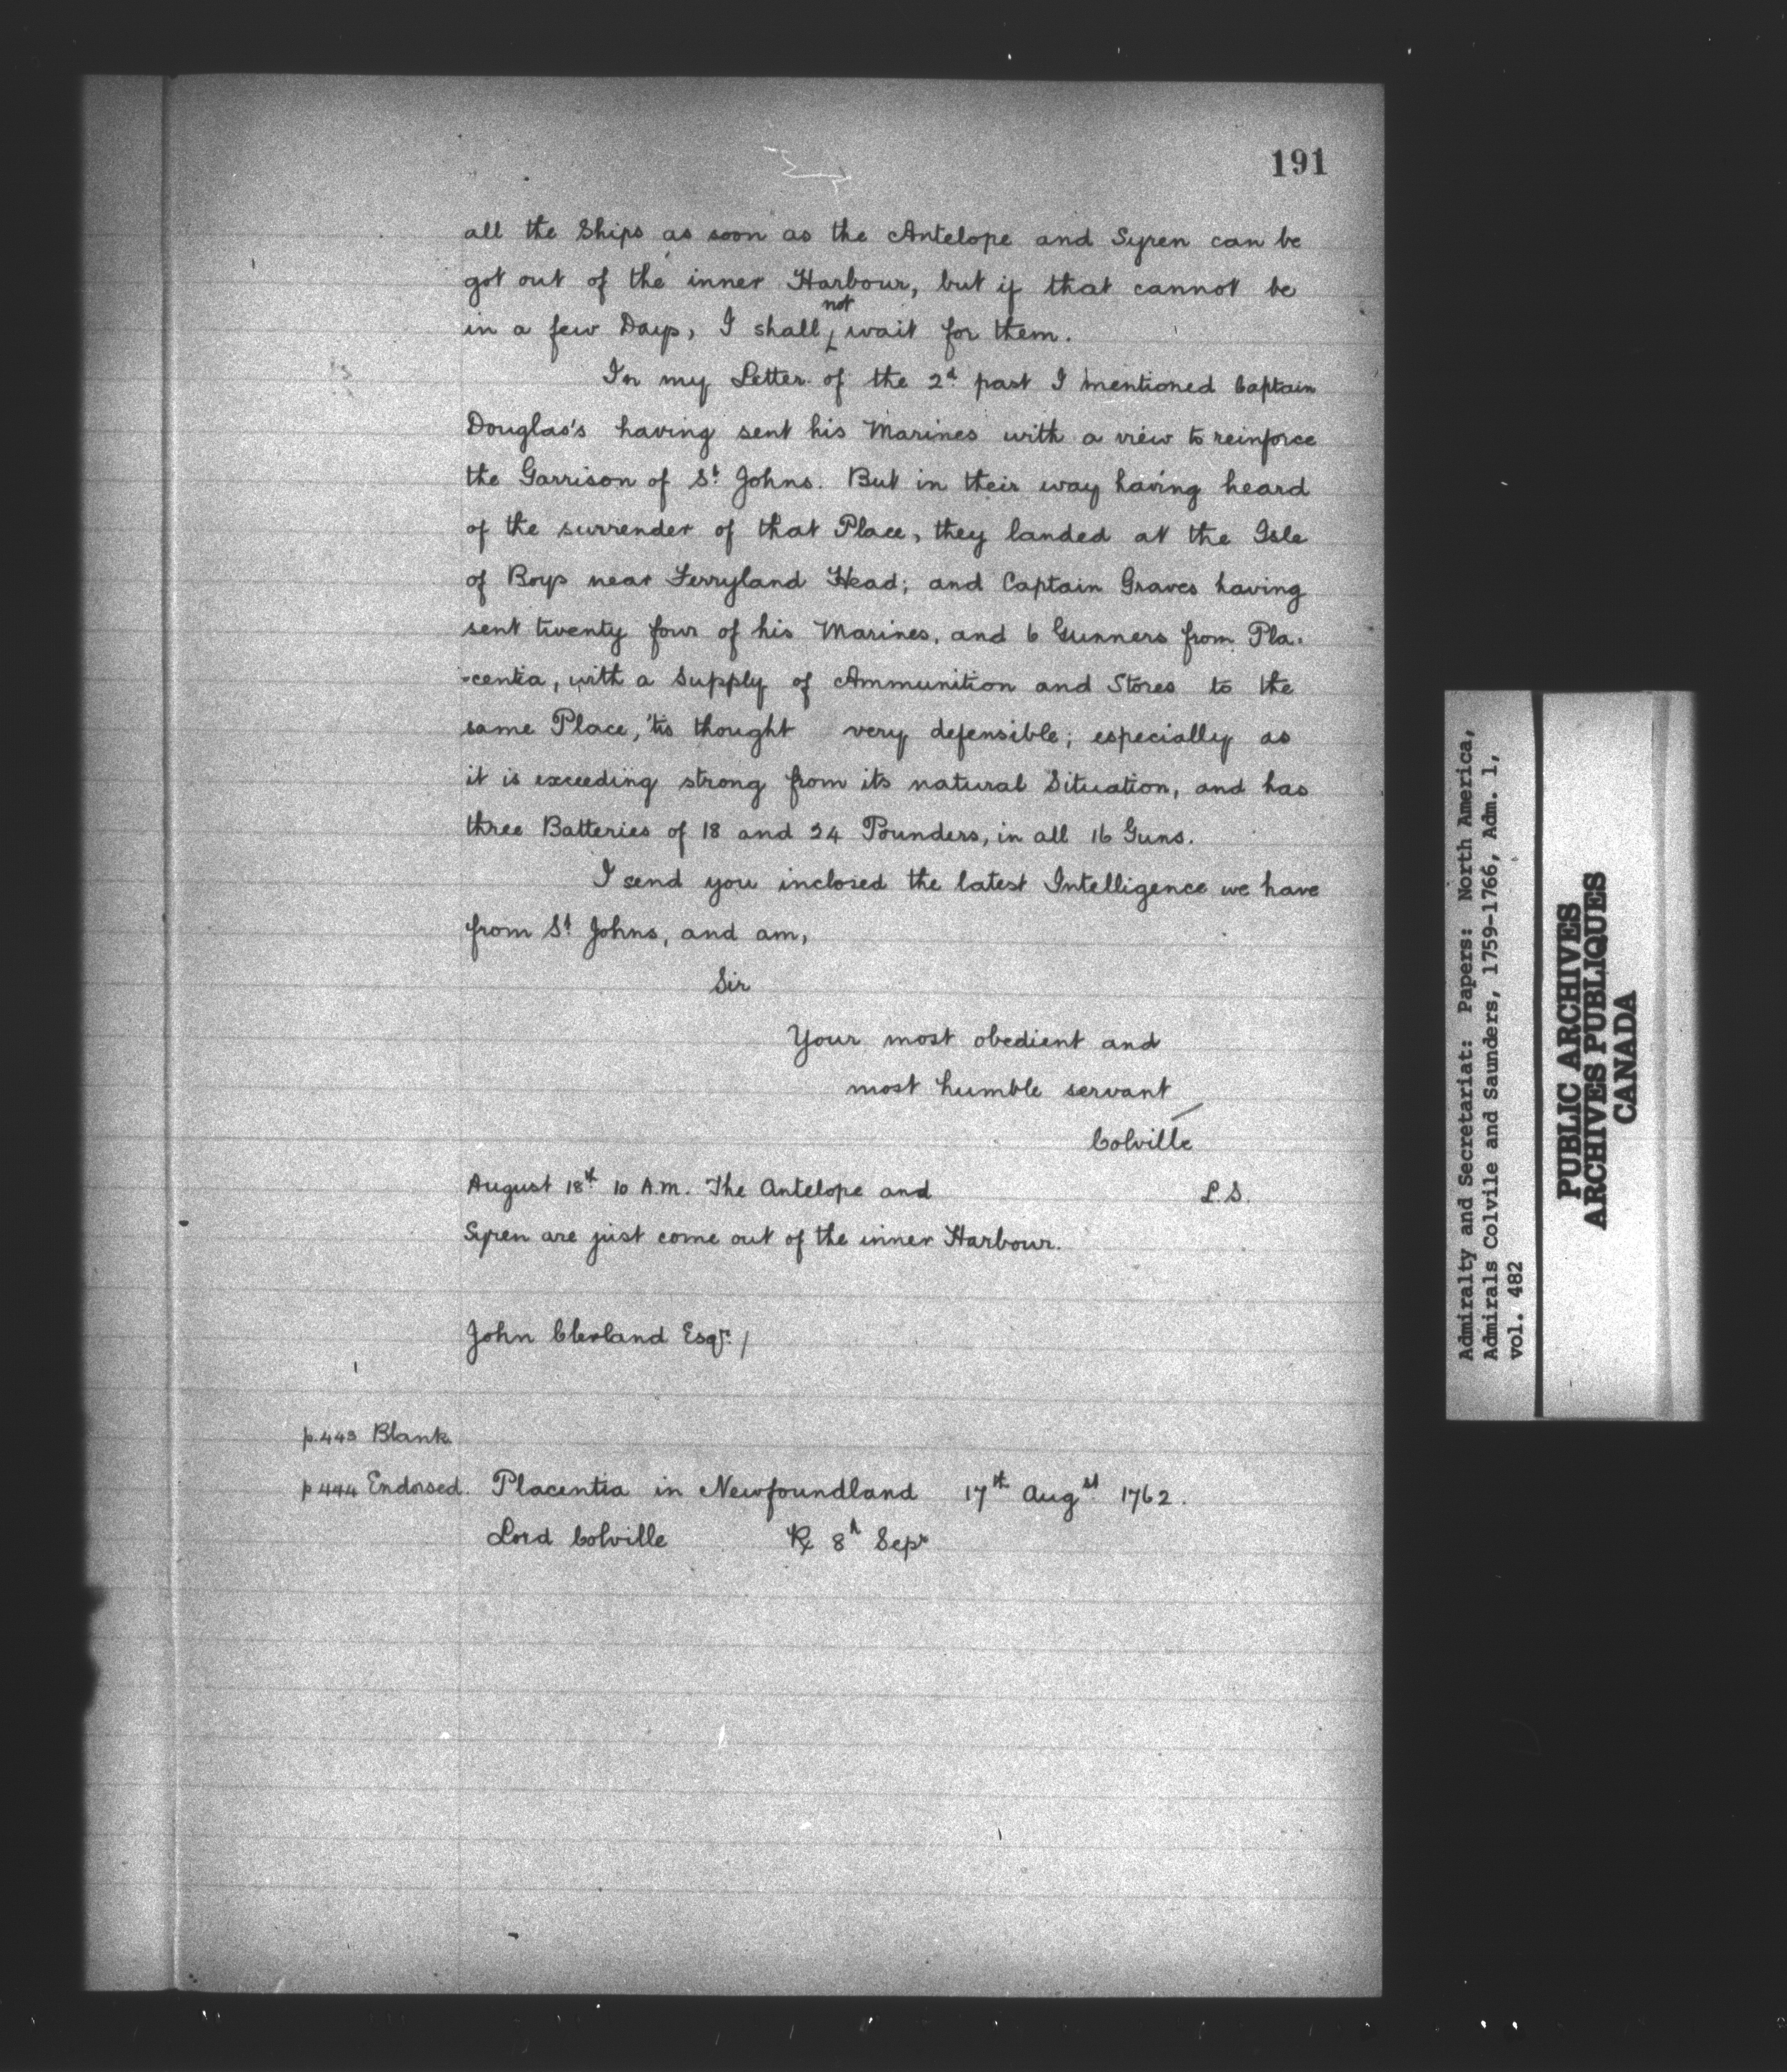 191
all the Ships as soon as the Antelope and Syren can be
got out of the inner Harbour, but if that cannot be
in a few Days, I shall not wait for them.
In my Letter of the 2d past I mentioned Captain
Douglas's having sent his Marines with a view to reinforce
the Garrison of St Johns. But in their way having heard
of the surrender of that Place, they landed at the Isle
of Boys near Ferryland Head; and Captain Graves having
sent twenty four of his Marines, and 6 Gunners from Pla-
-centia, with a Supply of Ammunition and Stores to the
same Place, 'tis thought very defensible; especially as
it is exceeding strong from its natural Situation, and has
three Batteries of 18 and 24 Pounders, in all 16 Guns.
I send you inclosed the latest Intelligence we have
from St Johns, and am,
Sir
Your most obedient and
most humble servant
Colville
August 18th 10 A.M. The Antelope and L.S.
Syren are just come out of the inner Harbour.
John Clevland Esqr. /
p.443 Blank
p.444 Endorsed. Placentia in Newfoundland 17th Augst 1762.
Lord Colville Rx 8th Sepr
Admiralty and Secretariat: Papers: North America,
Admirals Colvile and Saunders, 1759-1766, Adm. 1,
vol. 482
PUBLIC ARCHIVES
ARCHIVES PUBLIQUES
CANADA